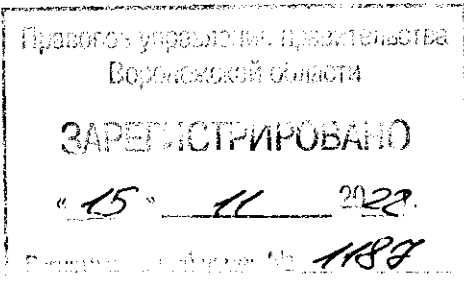 Правовое управление правительства
Воронежской области
ЗАРЕГИСТРИРОВАНО
« 15 » 11 2022.
№ 1187